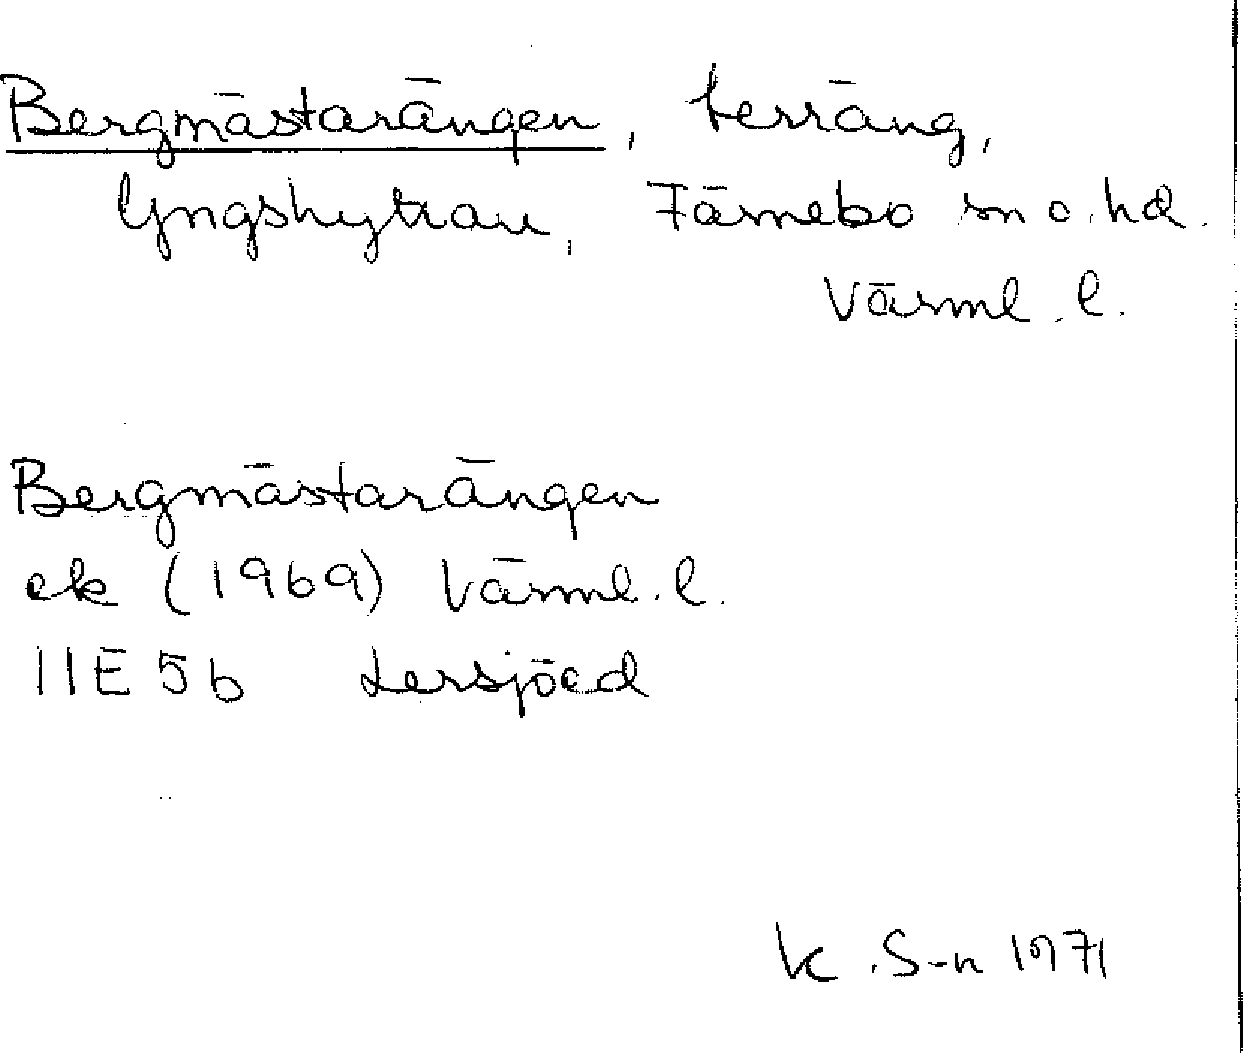 Bergmästarängen, terräng,
Yngshyttan, Färnebo sn o. hd.
Värml. l.
Bergmästarängen
ek (1969) Värml. l.
11E 5b Lersjöed
K. S-n 1971